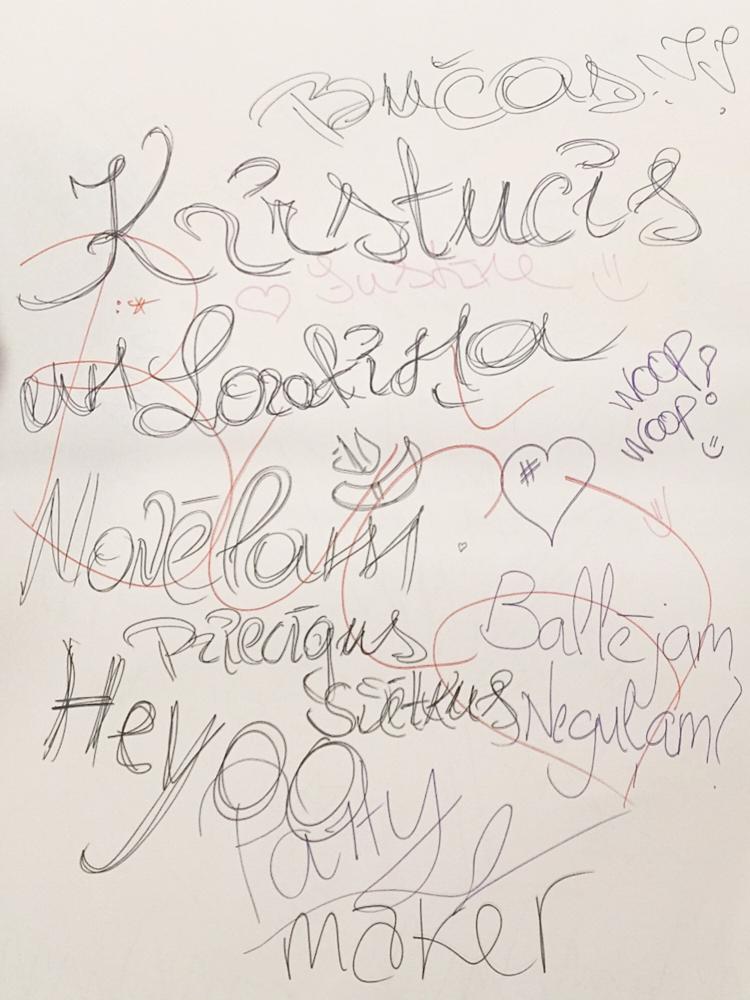 Bučas!!
Kristucis
Justīne
un Loratiņa
WOOP!
WOOP!
#
Novēlam
Priecīgus
Svētkus
Ballējam
Negulam!
Heyoo
Party
maker